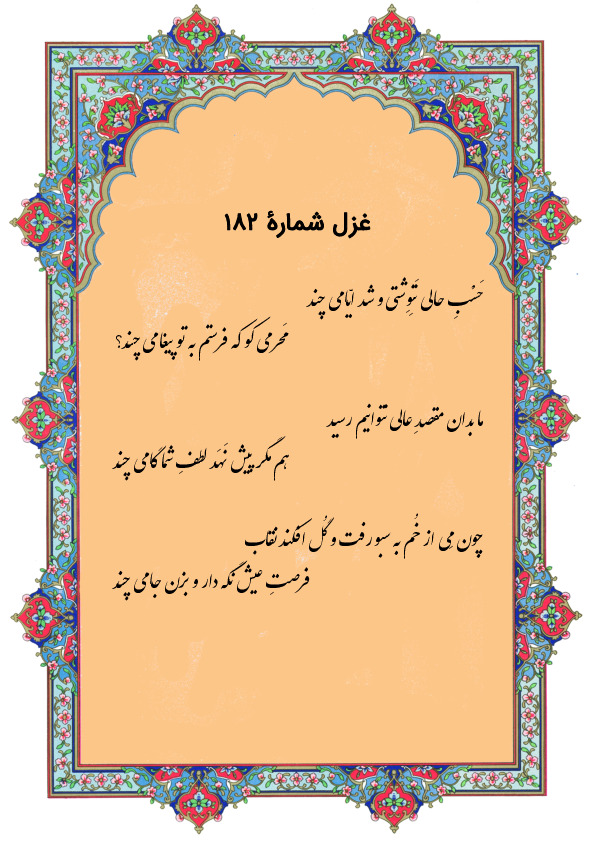 غزل شمارهٔ ۱۸۲
حَسْبِ حالی نَنِوِشتی و شد ایّامی چند
مَحرمی کو که فرستم به تو پیغامی چند؟
ما بدان مقصدِ عالی نتوانیم رسید
هم مگر پیش نَهَد لطفِ شما گامی چند
چون می از خُم به سبو رفت و گُل افکند نقاب
فرصتِ عیش نگه دار و بزن جامی چند